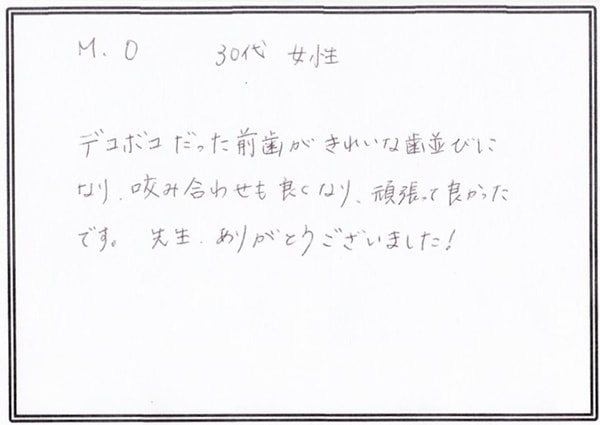 M. O 30代 女性
デコボコだった前歯がきれいな歯並びに
なり、咬み合わせも良くなり、頑張って良かった
です。 先生、ありがとうございました!